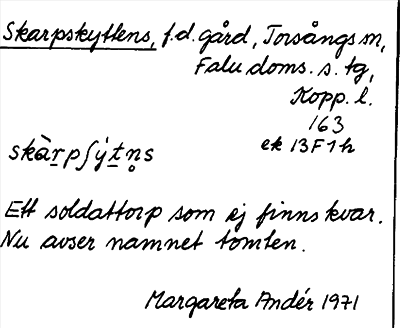 Skarpskyttens, f.d. gård, Torsångs sn,
Falu doms. s. tg,
Kopp. l.
163
ek 13F1h
skàr̲pʃýt̲n̥s
Ett soldattorp som ej finns kvar.
Nu avser namnet tomten.
Margareta Andér 1971